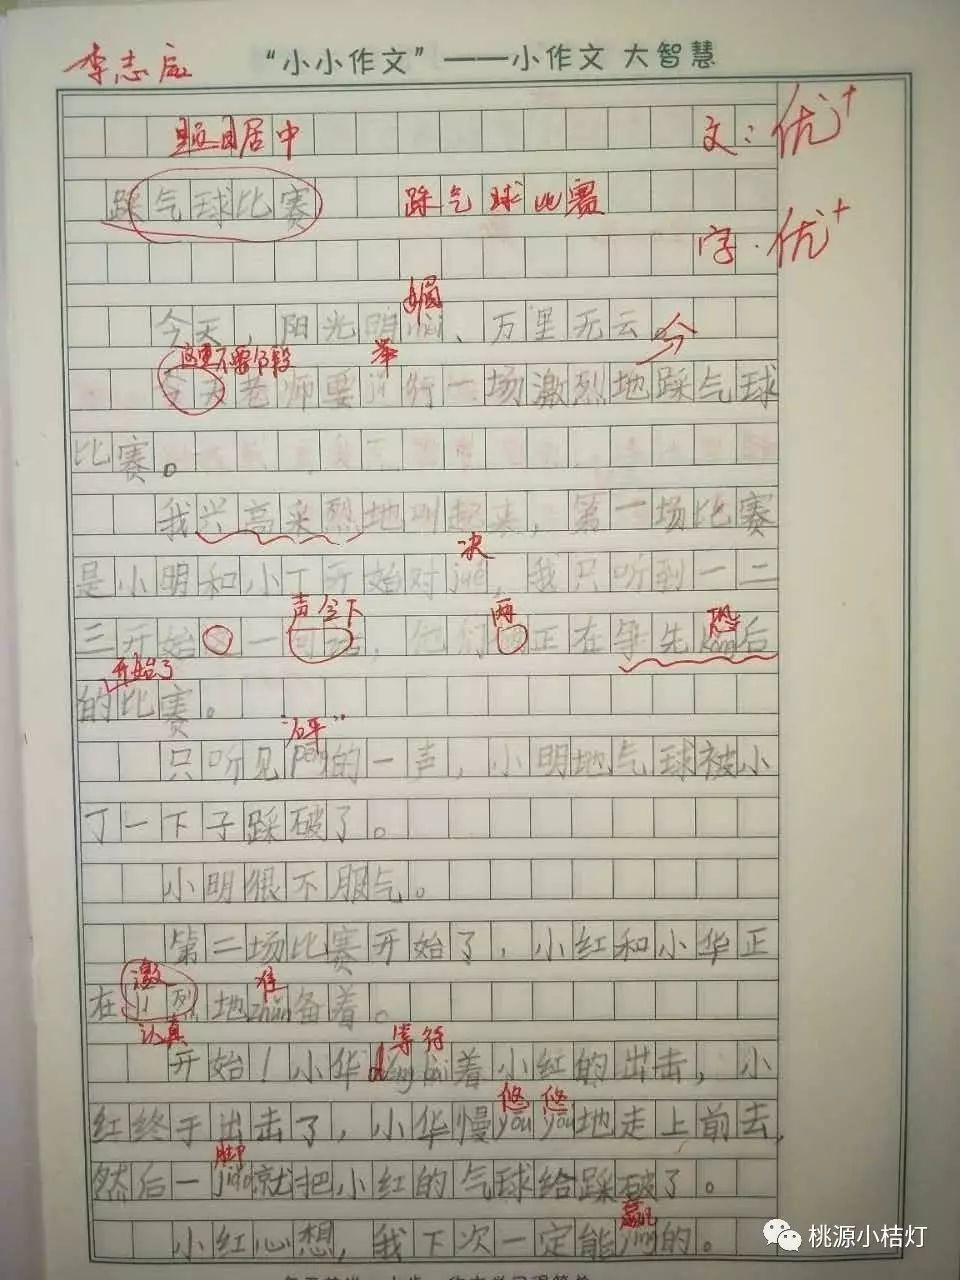 李志
“小小作文”——小作文 大智慧
题目居中
文:优+
踩气球比赛 踩气球比赛
字.优+
媚
今天,阳光明mèi、万里无云。
这里不要分段 举
今天老师要jǔ行一场激烈地踩气球
比赛。
我兴高采烈地叫起来,第一场比赛
决
是小明和小丁开始对jué,我只听到一二
声令下 两 恐
三开始 一 ,他们 正在争先kǒng后
开始了
的比赛。
“砰”
只听见pēng的一声,小明地气球被小
丁一下子踩破了。
小明很不服气。
第二场比赛开始了,小红和小华正
激 准
在 烈地zhǔn备着。
认真
等待
开始!小华děng dài着小红的出击,小
悠悠
红终于出击了,小华慢yōu yōu地走上前去,
脚
然后一jiǎo就把小红的气球给踩破了。
赢
小红心想,我下次一定能yíng的。
桃源小桔灯